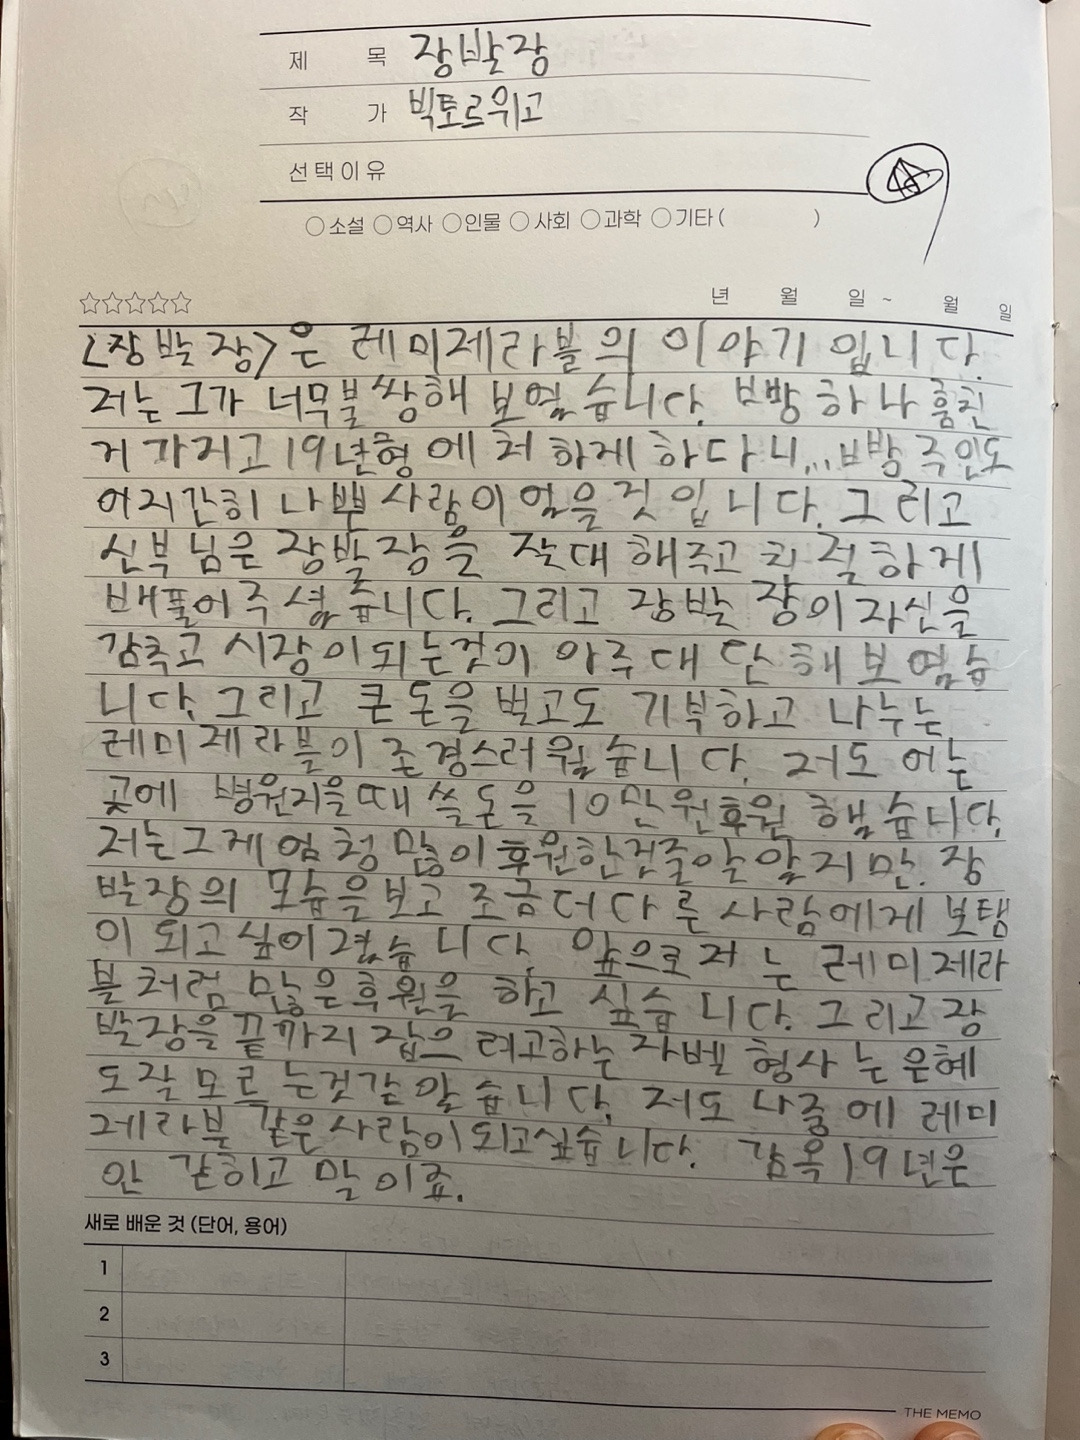 제 목 장발장
작 가 빅토르위고
선택이유
○소설 ○역사 ○인물 ○사회 ○과학 ○기타 ( )
☆☆☆☆☆ 년 월 일 ~ 월 일
<장발장>은 레미제라블의 이야기 입니다.
저는 그가 너무불쌍해 보였습니다. 빵 하나 훔친
거 가지고 19년형에 처하게 하다니... 빵주인도
어지간히 나쁜사람이었을것입니다. 그리고
신부님은 장발장을 잘대해주고 친절하게
배풀어주셨습니다. 그리고 장발장이 자신을
감추고 시장이되는것이 아주대단해보였습
니다. 그리고 큰돈을 벌고도 기부하고 나누는
레미제라블이 존경스러웠습니다. 저도 어는
곳에 병원지을때 쓸돈을 10만원후원 했습니다.
저는그게엄청많이후원한건줄알았지만. 장
발장의 모습을보고 조금더다른사람에게 보탬
이 되고싶어졌습니다. 앞으로저는 레미제라
블처럼 많은후원을 하고 싶습니다. 그리고장
발장을끝까지 잡으려고하는 자벨 형사는은혜
도잘모르는것같았습니다. 저도 나중에 레미
제라블 같은사람이되고싶습니다. 감옥19년은
안 갇히고 말이죠.
새로 배운 것 (단어, 용어)
1
2
3
THE MEMO